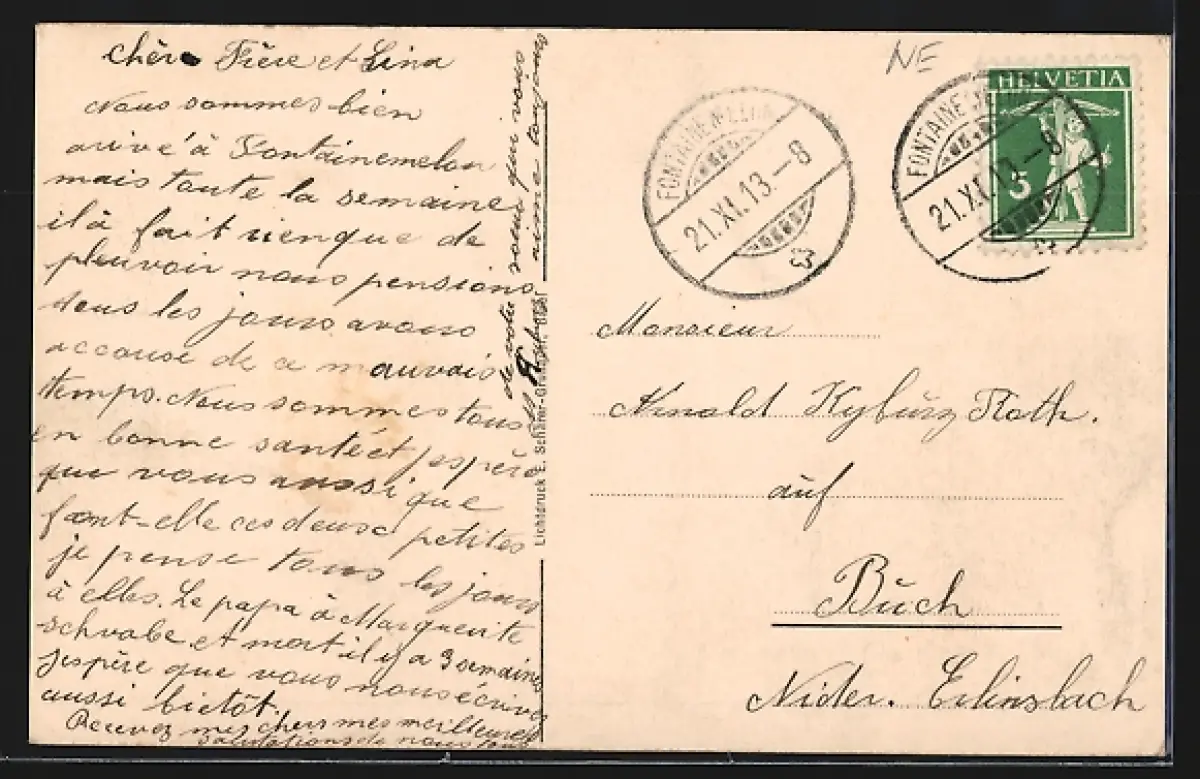 chère Frère et Lina
Nous sommes bien
arivé à Fontainemelon
mais toute la semaine
il à fait rienque de
pleuvoir nous pensions
tous les jours a vous
accause de ce mauvais
temps. Nous sommes tous
en bonne santé et j'espère
que vous aussi que
font-elle ces deuse petites
je pense tous les jours
à elles. Le papa à Marguerite
schvabe et mort il y a 3 semaines
j'espère que vous nous écrivez
aussi bientôt.
Recevez mes chers mes meilleures
salutations de nous tous
de votre soeur qui vous
aime toujours
Lichtdruck E. Schärer-
NE
HELVETIA
5
FONTAINEMELON
21.XI.13-8
FONTAINEMELON
21.XI.13-8
Monsieur
Arnold Kyburz Roth.
auf
Buch
Nider. Erlinsbach